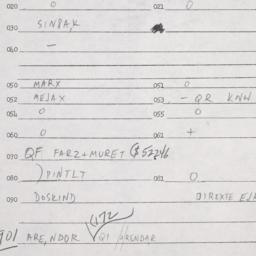 020 0 021 0
030 SINBAK
040 —
050 MARX 051 0
052 MEJAX 053 - QR KNW
054 0 055 0
060 0 061 +
070 QF FARZ+MURET
080 )PINTLT 081 0
090 DOSKIND DIREXTE
901 ARE,NDOR QI //ARENDAR